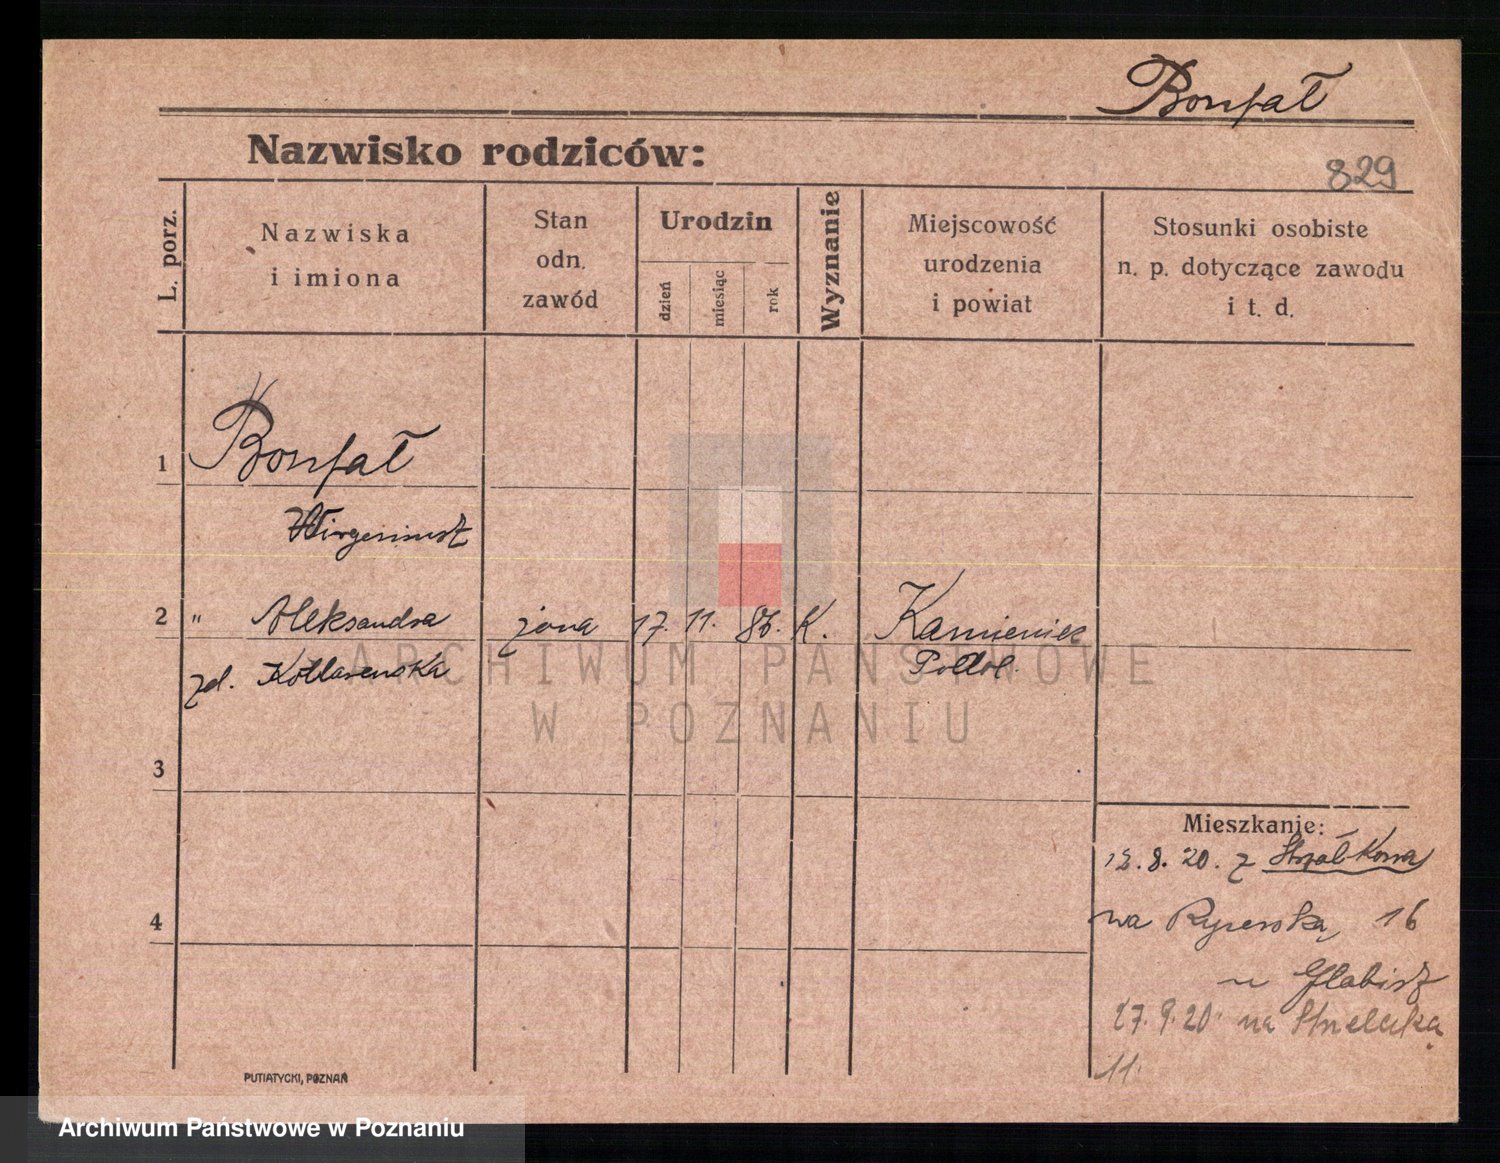 Bonfał
Nazwisko rodziców:
829
L. porz.
Nazwiska
i imiona
Stan
odn.
zawód
Urodzin
dzień
miesiąc
rok
Wyznanie
Miejscowość
urodzenia
i powiat
Stosunki osobiste
n. p. dotyczące zawodu
i t. d.
1 Bonfał
2 " Aleksandra żona 17. 11. 86. K. Kamieniec
zd. Podol.
ARCHIWUM PAŃSTWOWE
W POZNANIU
3
Mieszkanie:
8. 20. z Strzałkowa
4 na Rycerską 16
u Glabisz
27. 9. 20 na Strzelecką
11
PUTIATYCKI, POZNAŃ
Archiwum Państwowe w Poznaniu